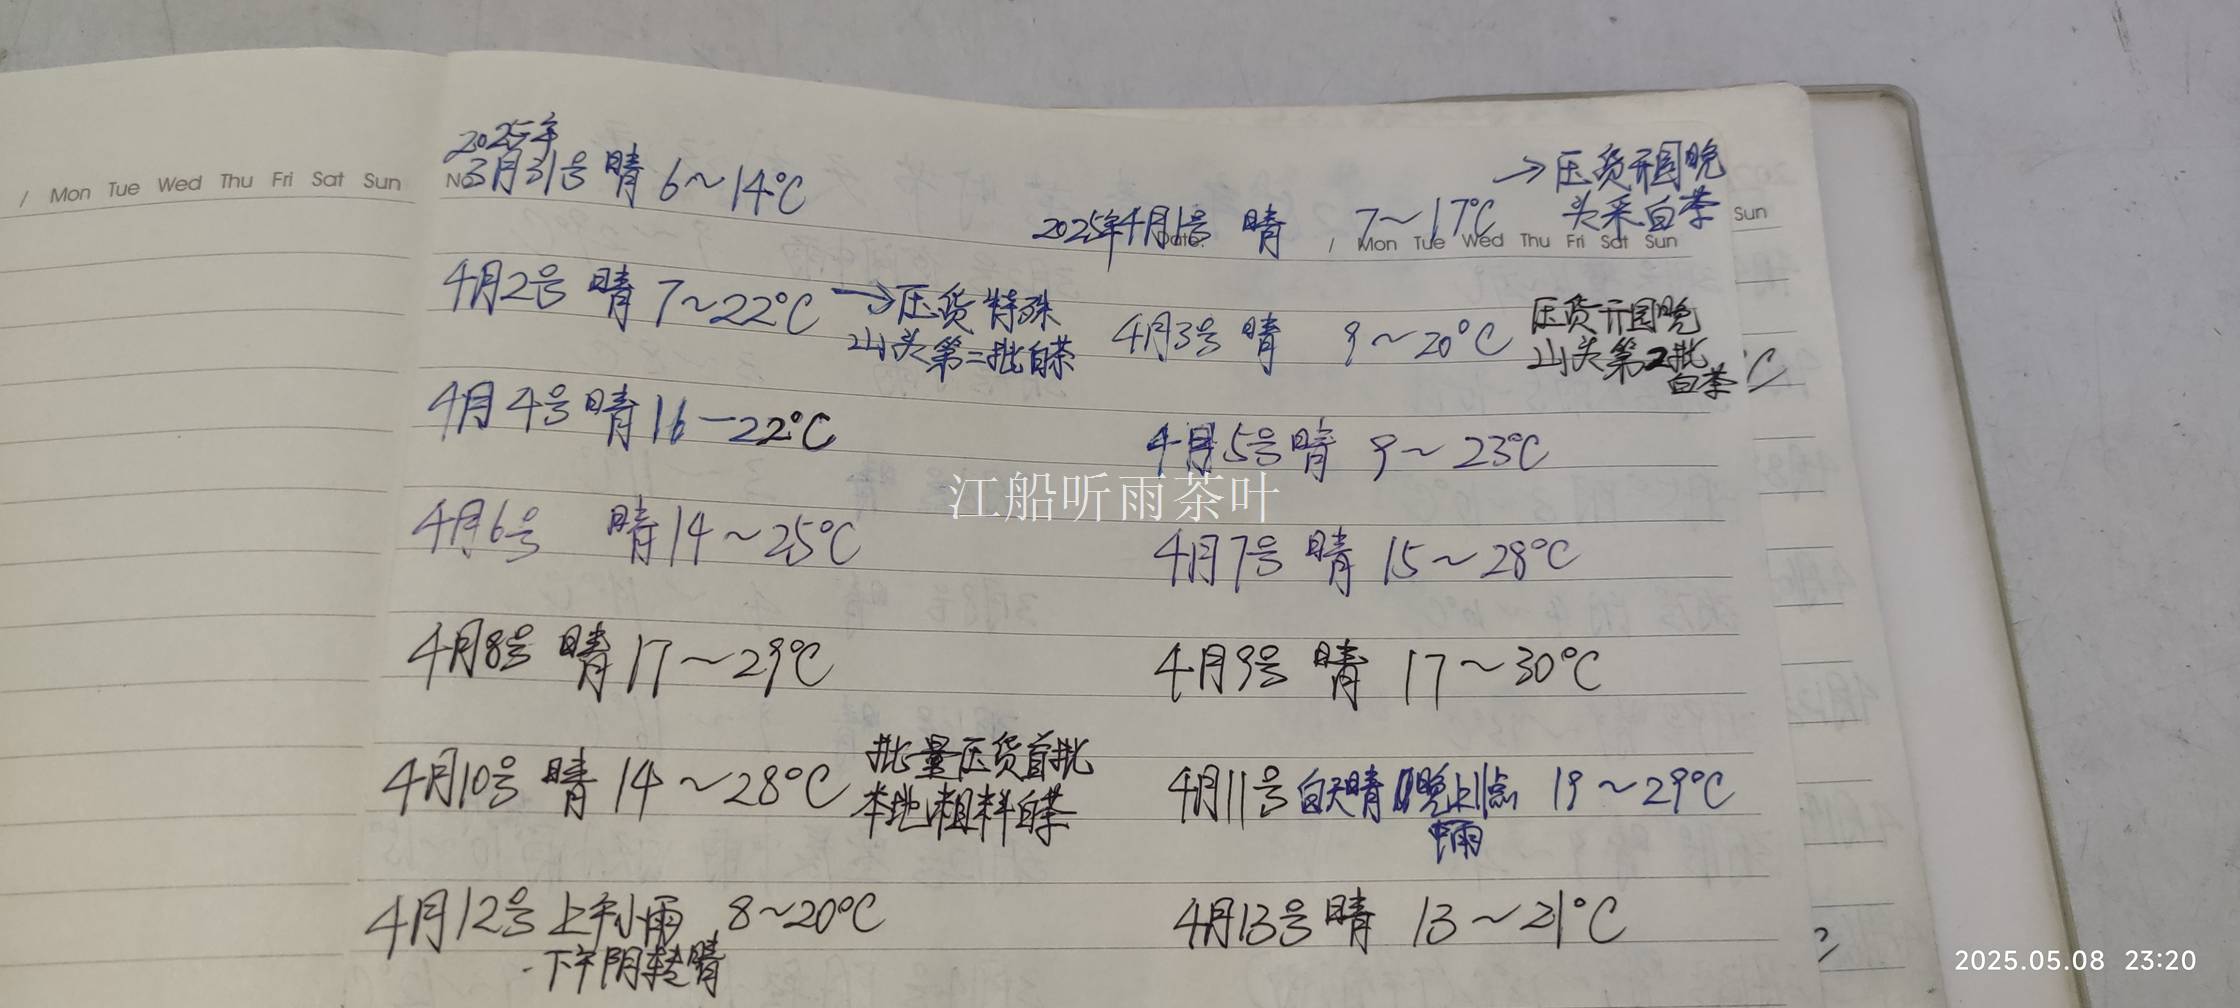 / Mon Tue Wed Thu Fri Sat Sun
2025年
No
3月31号 晴 6~14℃
2025年4月1号 晴 7~17℃ →压货开园晚
头采白茶
Date: / Mon Tue Wed Thu Fri Sat Sun
Sun
4月2号 晴 7~22℃ →压货特殊
山头第二批白茶
4月3号 晴 9~20℃ 压货开园晚
山头第2批
白茶
℃
4月4号 晴 16—22℃
4月5号 晴 9~23℃
江船听雨茶叶
4月6号 晴 14~25℃
4月7号 晴 15~28℃
4月8号 晴 17~29℃
4月9号 晴 17~30℃
4月10号 晴 14~28℃ 批量压货首批
本地粗料白茶
4月11号 白天晴 晚上11点 19~29℃
中雨
4月12号 上午小雨 8~20℃
下午阴转晴
4月13号 晴 13~21℃
2025.05.08 23:20